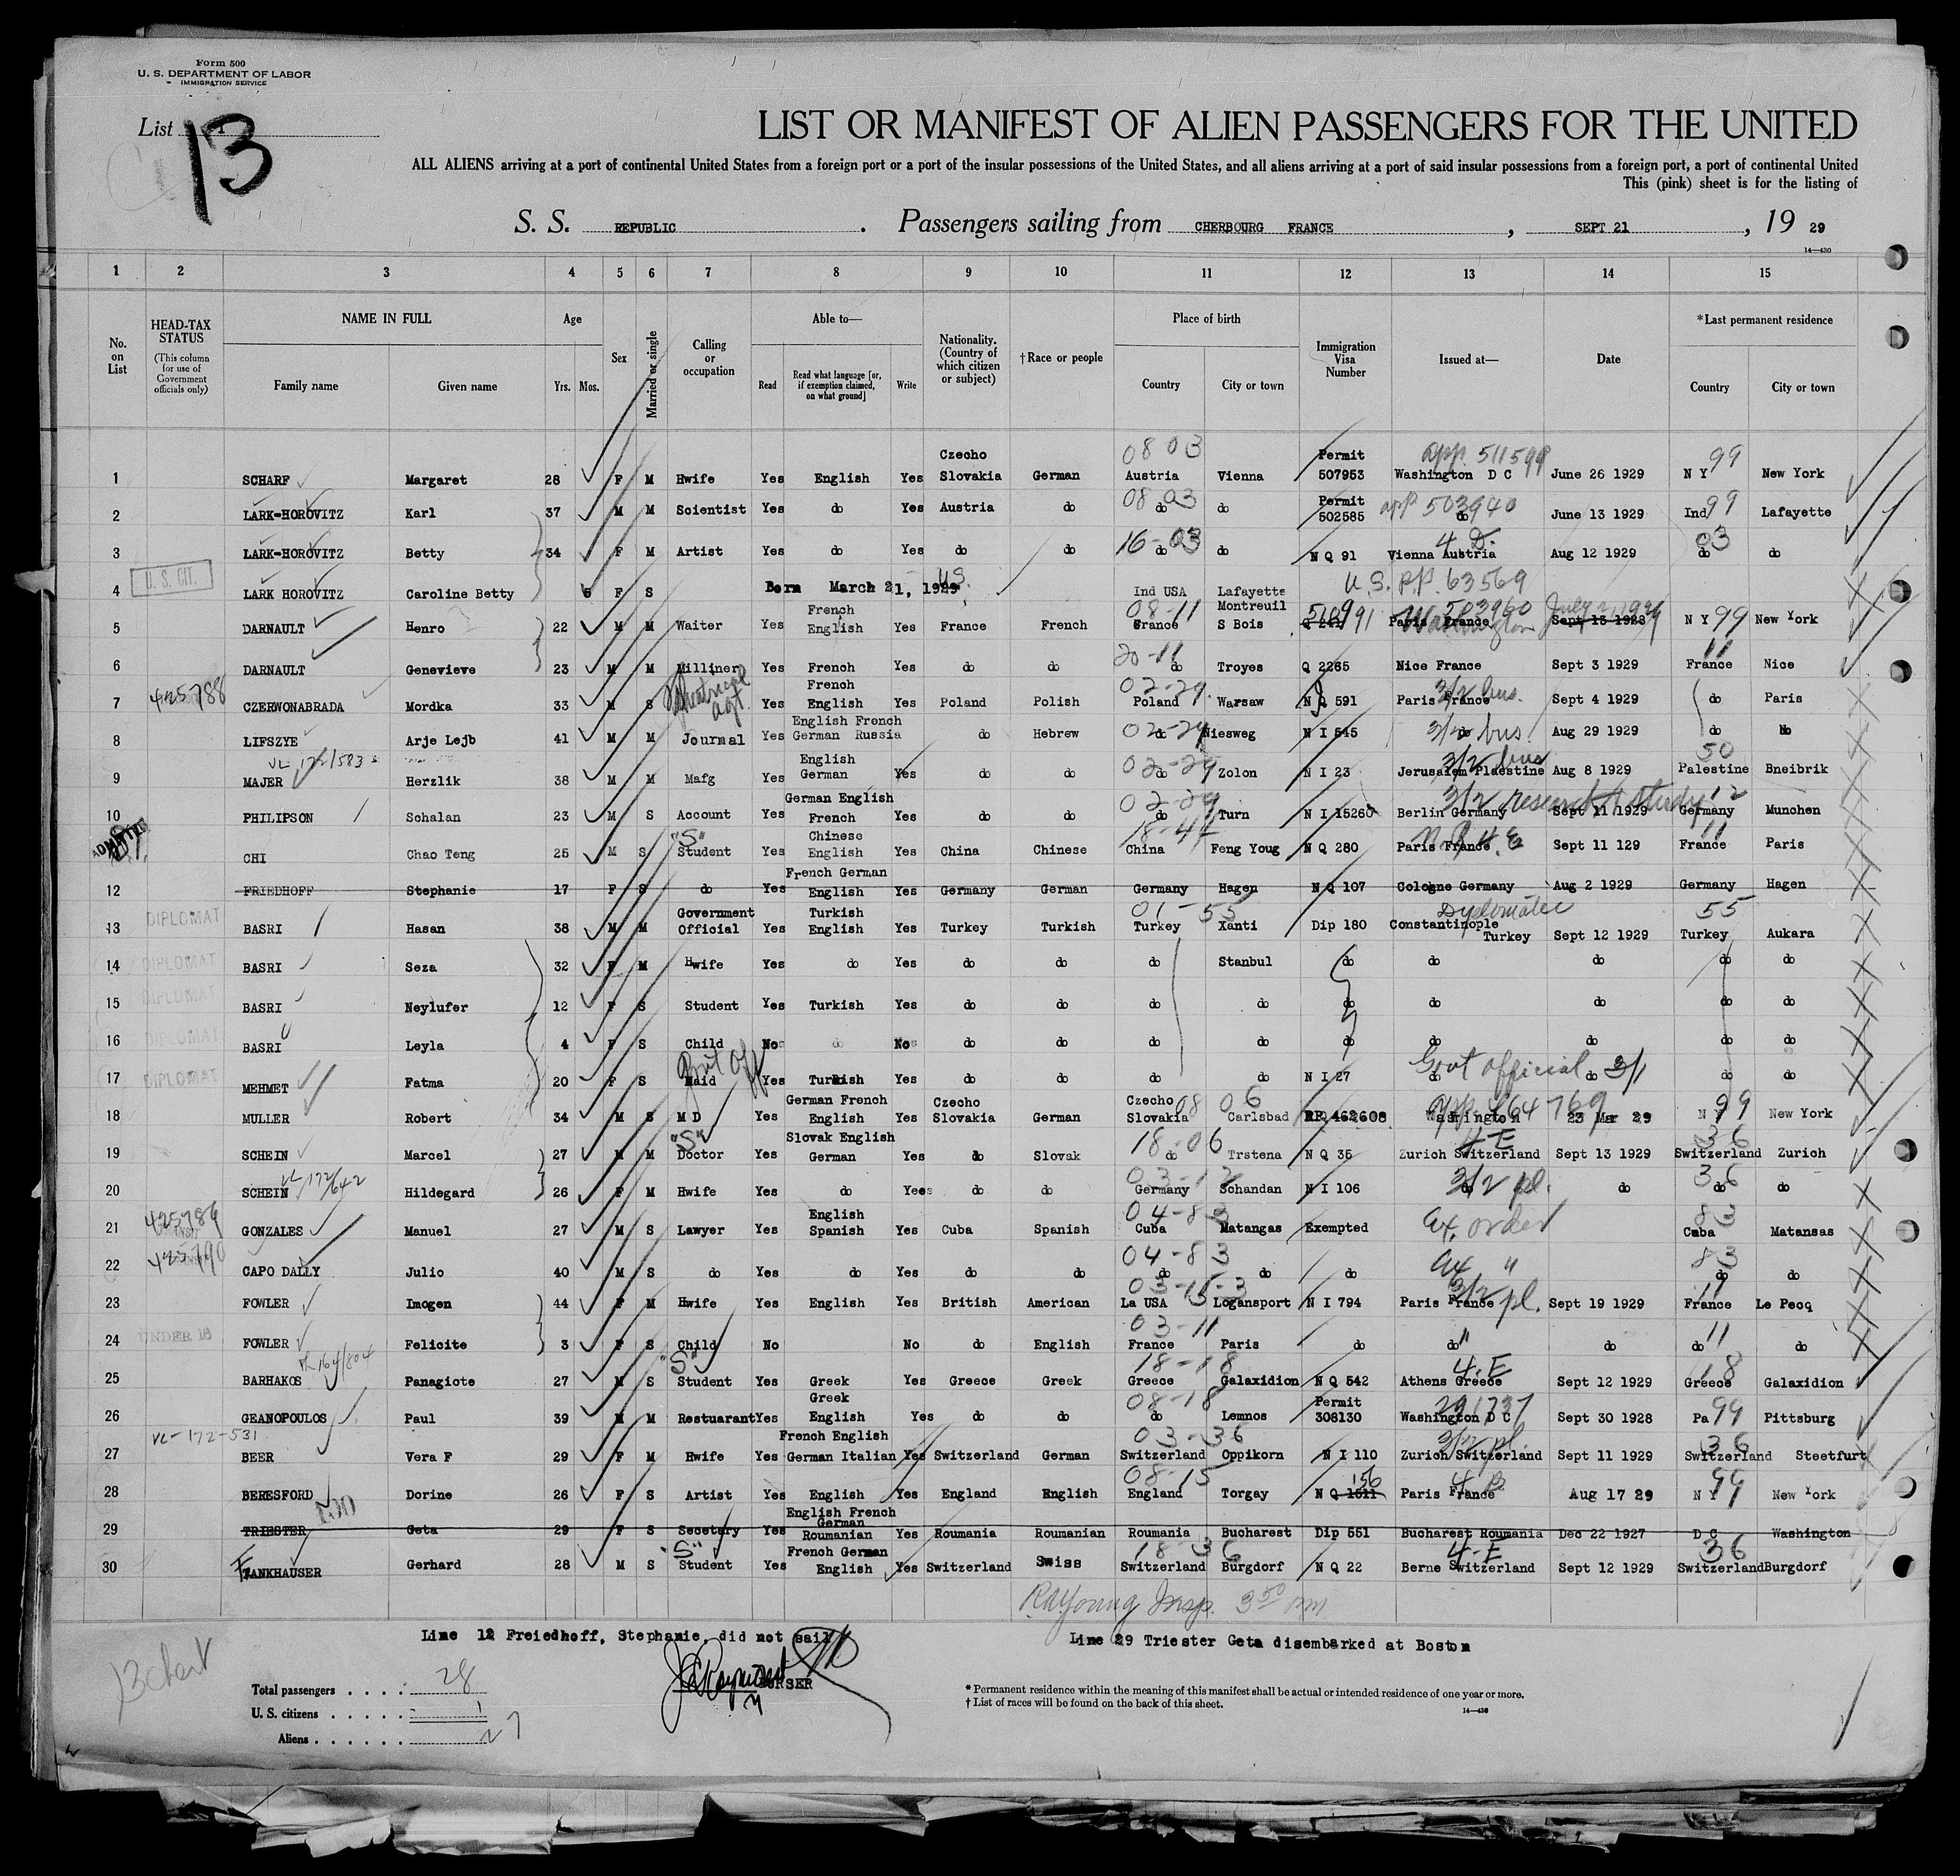 Form 500
U. S. DEPARTMENT OF LABOR
IMMIGRATION SERVICE
List 13
LIST OR MANIFEST OF ALIEN PASSENGERS FOR THE UNITED
ALL ALIENS arriving at a port of continental United States from a foreign port or a port of the insular possessions of the United States, and all aliens arriving at a port of said insular possessions from a foreign port, a port of continental United
This (pink) sheet is for the listing of
S. S. REPUBLIC. Passengers sailing from CHERBOURG FRANCE, SEPT 21, 19 29
14—430
1 2 3 4 5 6 7 8 9 10 11 12 13 14 15
No. on List HEAD-TAX STATUS (This column for use of Government officials only) NAME IN FULL Family name Given name Age Yrs. Mos. Sex Married or single Calling or occupation Able to— Read Read what language [or, if exemption claimed, on what ground] Write Nationality. (Country of which citizen or subject) †Race or people Place of birth Country City or town Immigration Visa Number Issued at— Date *Last permanent residence Country City or town
1 SCHARF Margaret 28 F M Hwife Yes English Yes Czecho Slovakia German 08 03 Austria Vienna Permit 507953 app. 511599 Washington D C June 26 1929 N Y 99 New York
2 LARK-HOROVITZ Karl 37 M M Scientist Yes do Yes Austria do 08-03 do do Permit 502585 app 503940 do June 13 1929 Ind 99 Lafayette
3 LARK-HOROVITZ Betty 34 F M Artist Yes do Yes do do 16-03 do do N Q 91 4 D. Vienna Austria Aug 12 1929 03 do do
U. S. CIT.
4 LARK HOROVITZ Caroline Betty 6 F S Born March 21, 1929 U.S. Ind USA Lafayette U.S. P.P. 63569
5 DARNAULT Henro 22 M M Waiter Yes French English Yes France French 08-11 France Montreuil S Bois Paris France Washington 503960 Sept 15 1928 N Y 99 New York
6 DARNAULT Genevieve 23 M M Milliner Yes French Yes do do 20-11 do Troyes Q 2265 Nice France Sept 3 1929 11 France Nice
7 425788 CZERWONABRADA Mordka 33 M S Theatrical agt. Yes French English Yes Poland Polish 02-29 Poland Warsaw N Q 591 3/2 bus. Paris France Sept 4 1929 do Paris
8 LIFSZYE Arje Lejb 41 M M Journal Yes English French German Russia do Hebrew 02-29 Niesweg N I 545 3/2 bus. do Aug 29 1929 do do
9 MAJER Herzlik 38 M M Mafg Yes English German Yes do do 02-29 do Zolon N I 23 3/2 bus Jerusalem Plaestine Aug 8 1929 50 Palestine Bneibrik
10 PHILIPSON Schalan 23 M S Account Yes German English French Yes do do 02-29 do Turn N I 15260 3/2 research & study Berlin Germany Sept 11 1929 12 Germany Munchen
ADMITTED CHI Chao Teng 25 M S "S" Student Yes Chinese English Yes China Chinese 18-44 China Feng Youg N Q 280 Paris France 4 E Sept 11 129 11 France Paris
12 FRIEDHOFF Stephanie 17 F S do Yes French German English Yes Germany German Germany Hagen N Q 107 Cologne Germany Aug 2 1929 Germany Hagen
13 DIPLOMAT BASRI Hasan 38 M M Government Official Yes Turkish English Yes Turkey Turkish 01-55 Turkey Xanti Dip 180 Diplomatic Constantinople Turkey Sept 12 1929 55 Turkey Aukara
14 DIPLOMAT BASRI Seza 32 F M Hwife Yes do Yes do do do Stanbul do do do do do
15 DIPLOMAT BASRI Neylufer 12 F S Student Yes Turkish Yes do do do do do do do do do
16 DIPLOMAT BASRI Leyla 4 F S Child No do No do do do do do do do do do
17 DIPLOMAT MEHMET Fatma 20 F S Govt Off Maid Yes Turkish Yes do do do do N I 27 Govt official 3/1 do do do do
18 MULLER Robert 34 M S M D Yes German French English Yes Czecho Slovakia German Czecho Slovakia 08 06 Carlsbad RP 462608 Washington 23 Mar 29 N Y 99 New York
19 SCHEIN Marcel 27 M M "S" Doctor Yes Slovak English German Yes do Slovak 18-06 do Trstena N Q 35 4-E Zurich Switzerland Sept 13 1929 36 Switzerland Zurich
20 SCHEIN Hildegard 26 F M Hwife Yes do Yes do do 03-12 Germany Schandan N I 106 3/2 pl. do do 36 do do
21 425789 GONZALES Manuel 27 M S Lawyer Yes English Spanish Yes Cuba Spanish 04-83 Cuba Matangas Exempted Ex. order 83 Cuba Matansas
22 425790 CAPO DALLY Julio 40 M S do Yes do Yes do do 04-83 do do do Ex " 83 do do
23 FOWLER Imogen 44 F M Hwife Yes English Yes British American 03-15-3 La USA Logansport N I 794 3/2 pl. Paris France Sept 19 1929 11 France Le Pecq
24 UNDER 18 FOWLER Felicite 3 F S Child No No do English 03-11 France Paris do do " do 11 do do
25 BARHAKOS Panagiote 27 M S "S" Student Yes Greek Yes Greece Greek 18-18 Greece Galaxidion N Q 542 4-E Athens Greece Sept 12 1929 18 Greece Galaxidion
26 GEANOPOULOS Paul 39 M M Restuarant Yes Greek English Yes do do 08-18 do Lemnos Permit 308130 291737 Washington D C Sept 30 1928 Pa 99 Pittsburg
VL-172-531
27 BEER Vera F 29 F M Hwife Yes French English German Italian Yes Switzerland German 03-36 Switzerland Oppikorn N I 110 3/2 pl. Zurich Switzerland Sept 11 1929 36 Switzerland Steetfurt
28 BERESFORD Dorine 26 F S Artist Yes English Yes England English 08-15 England Torgay N Q 1511 156 4 B Paris France Aug 17 29 N Y 99 New York
29 TRIESTER Geta 29 F S Secetary Yes English French German Roumanian Yes Roumania Roumanian Roumania Bucharest Dip 551 Bucharest Roumania Dec 22 1927 D C Washington
30 FANKHAUSER Gerhard 28 M S "S" Student Yes French German English Yes Switzerland Swiss 18-36 Switzerland Burgdorf N Q 22 4-E Berne Switzerland Sept 12 1929 36 Switzerland Burgdorf
RA Young Insp. 3 50 pm
Line 12 Freiedhoff, Stephanie, did not sail
Line 29 Triester Geta disembarked at Boston
PURSER
Total passengers . . . . 28
U. S. citizens . . . . . 1
Aliens . . . . . . 27
* Permanent residence within the meaning of this manifest shall be actual or intended residence of one year or more.
† List of races will be found on the back of this sheet.
14—430